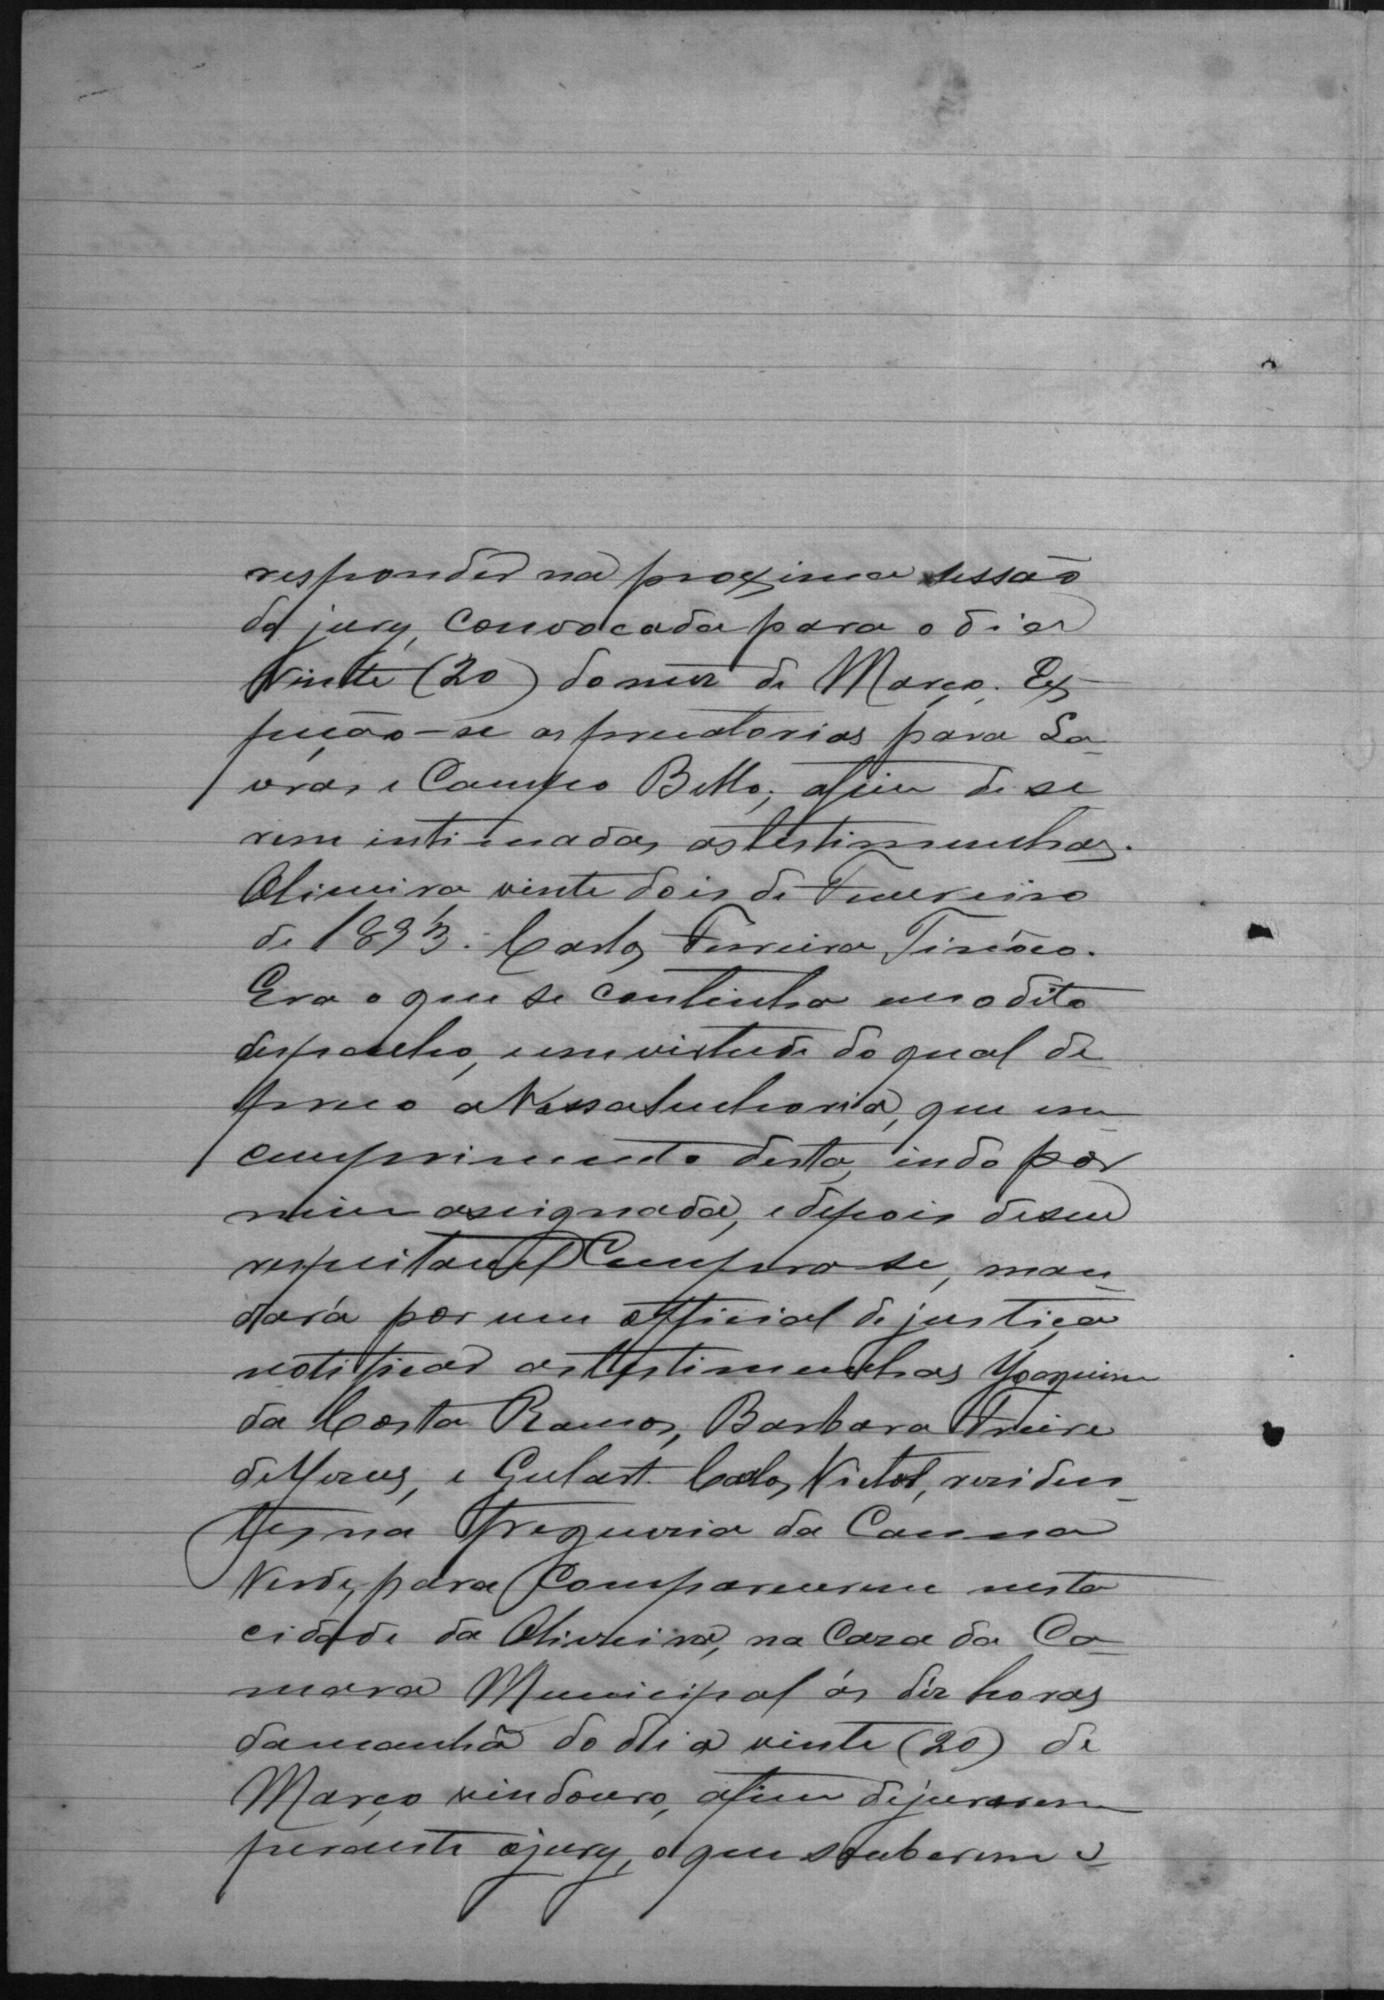 responder na proxima sessão
do jury, convocada para o dia
Vinte (20) do mez de Março. Ex-
peção-se as precatorias para La-
vras e Campo Bello, afim de se
rem intimadas as testimunhas.
Oliveira vinte dois de Fevereiro
de 1893. Carlos Ferreira Tinôco.
Era o que se continha em o dito
despacho, e em virtude do qual de-
preco a Vossa Senhoria, que em
cumprimento desta, indo por
mim assignada, e depois de seu
respeitavel Cumpra-se, man-
dará por um official de justiça
notificar as testimunhas Joaquim
da Costa Ramos, Barbara Freire
de, e Gulart Carlos Victol, residen-
tes na Freguezia da Canna
Verde, para comparecerem nesta
cidade da Oliveira, na Caza da Ca-
mara Municipal ás déz horas
da manhã do dia vinte (20) de
Março vindouro, afim de jurarem
perante o jury, o que souberem e